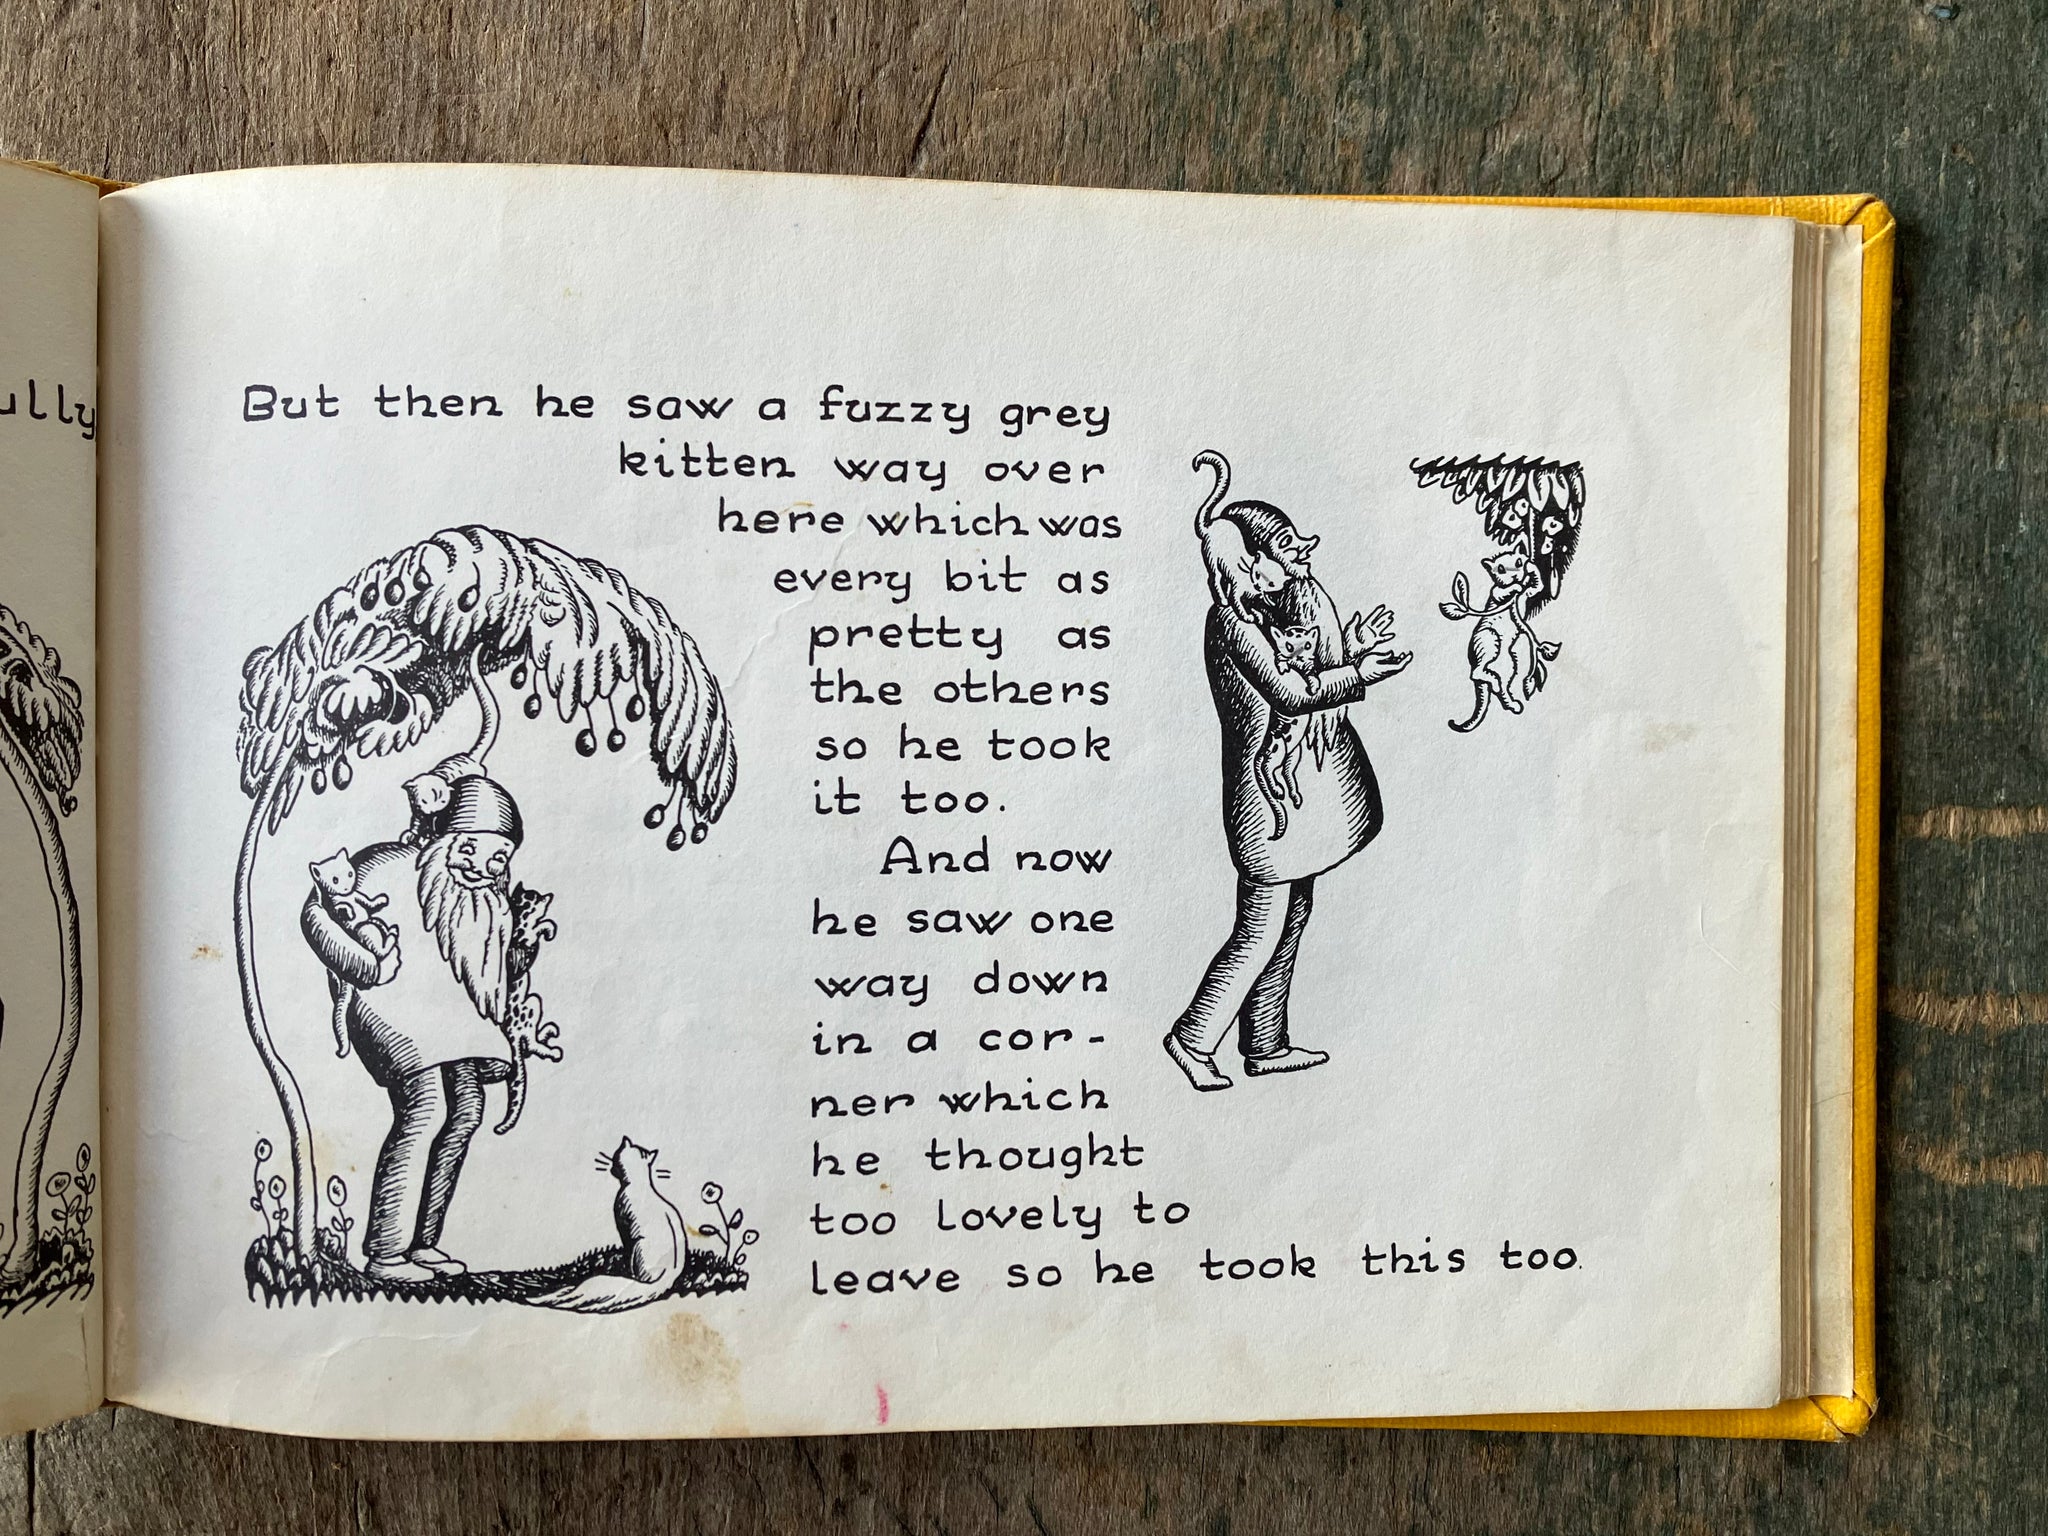 But then he saw a fuzzy grey
kitten way over
here which was
every bit as
pretty as
the others
so he took
it too.
And now
he saw one
way down
in a cor-
ner which
he thought
too lovely to
leave so he took this too.